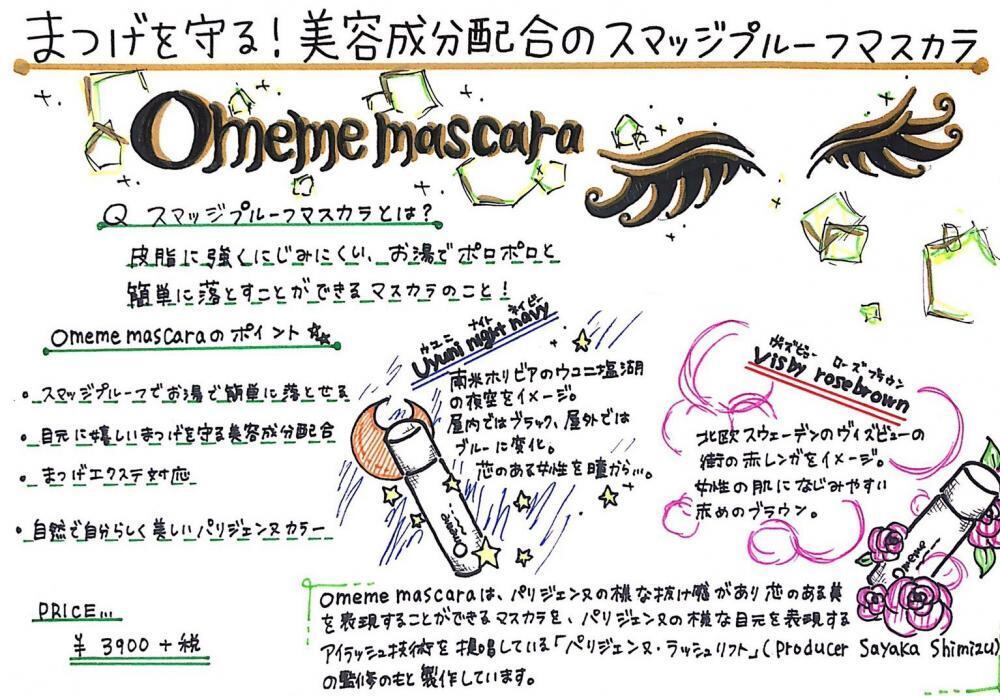 まつげを守る！美容成分配合のスマッジプルーフマスカラ
Omeme mascara
Q スマッジプルーフマスカラとは？
皮脂に強くにじみにくい、お湯でポロポロと
簡単に落とすことができるマスカラのこと！
omeme mascaraのポイント
・スマッジプルーフでお湯で簡単に落とせる
・目元に嬉しいまつげを守る美容成分配合
・まつげエクステ対応
・自然で自分らしく美しいパリジェンヌカラー
PRICE...
¥ 3900 + 税
ウユニ ナイト ネイビー
Uyuni night navy
南米ボリビアのウユニ塩湖
の夜空をイメージ。
屋内ではブラック、屋外では
ブルーに変化。
恋のある女性を瞳から…。
Omeme
ヴィズビュー ローズブラウン
Visby rosebrown
北欧スウェーデンのヴィズビューの
街の赤レンガをイメージ。
女性の肌になじみやすい
赤めのブラウン。
Omeme
omeme mascaraは、パリジェンヌの様な抜け感があり恋のある美
を表現することができるマスカラを、パリジェンヌの様な目元を表現する
アイラッシュ技術を提唱している「パリジェンヌ・ラッシュリフト」(Producer Sayaka Shimizu)
の監修のもと製作しています。